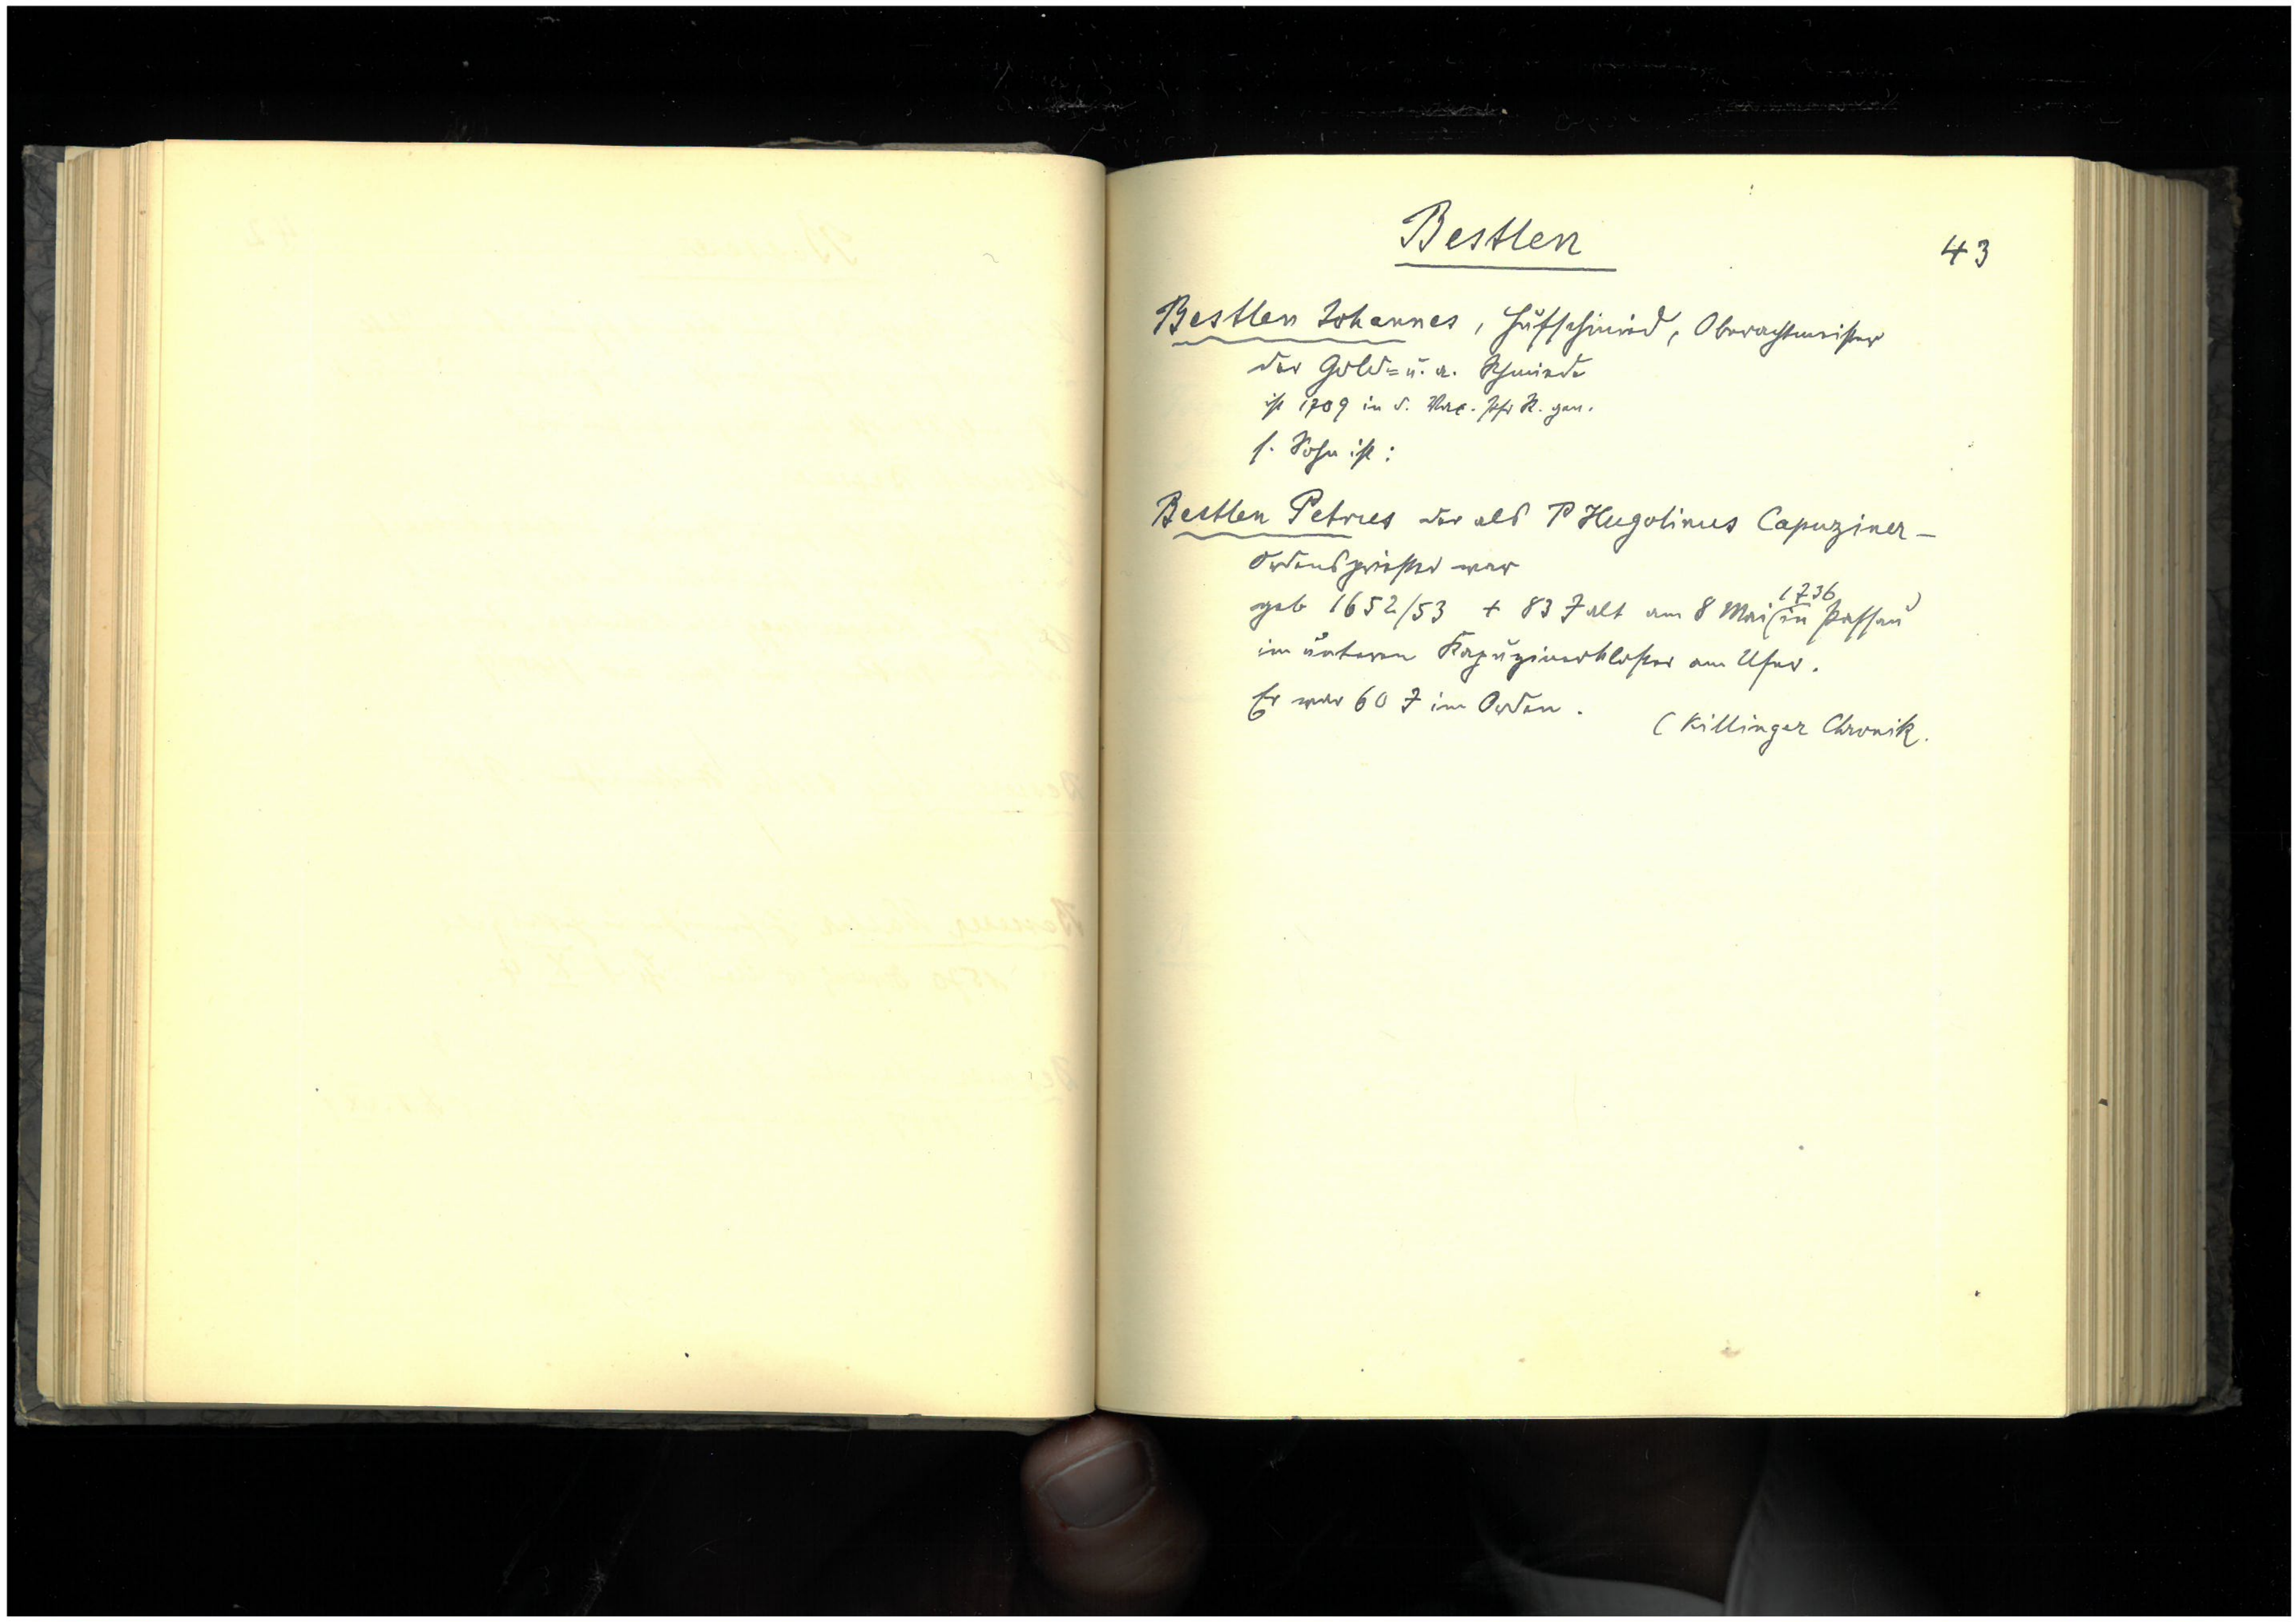 Bestlen
43
Bestlen Johannes, Hufschmied, Oberachtmeister
der Gold= u. a. Schmiede
ist 1709 in d. Pfr K. gen.
s. Sohn ist:
Bestlen Petrus der als P Hugolinus Capuziner-
Ordenspriester war
geb 1652/53 + 83 J alt am 8 Mai 1736 (in Passau)
im unteren Kapuzinerkloster am Ufer.
Er war 60 J im Orden.
(Killinger Chronik.